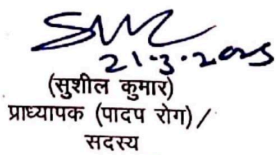 21.3.2025
(सुशील कुमार)
प्राध्यापक (पादप रोग)/
सदस्य